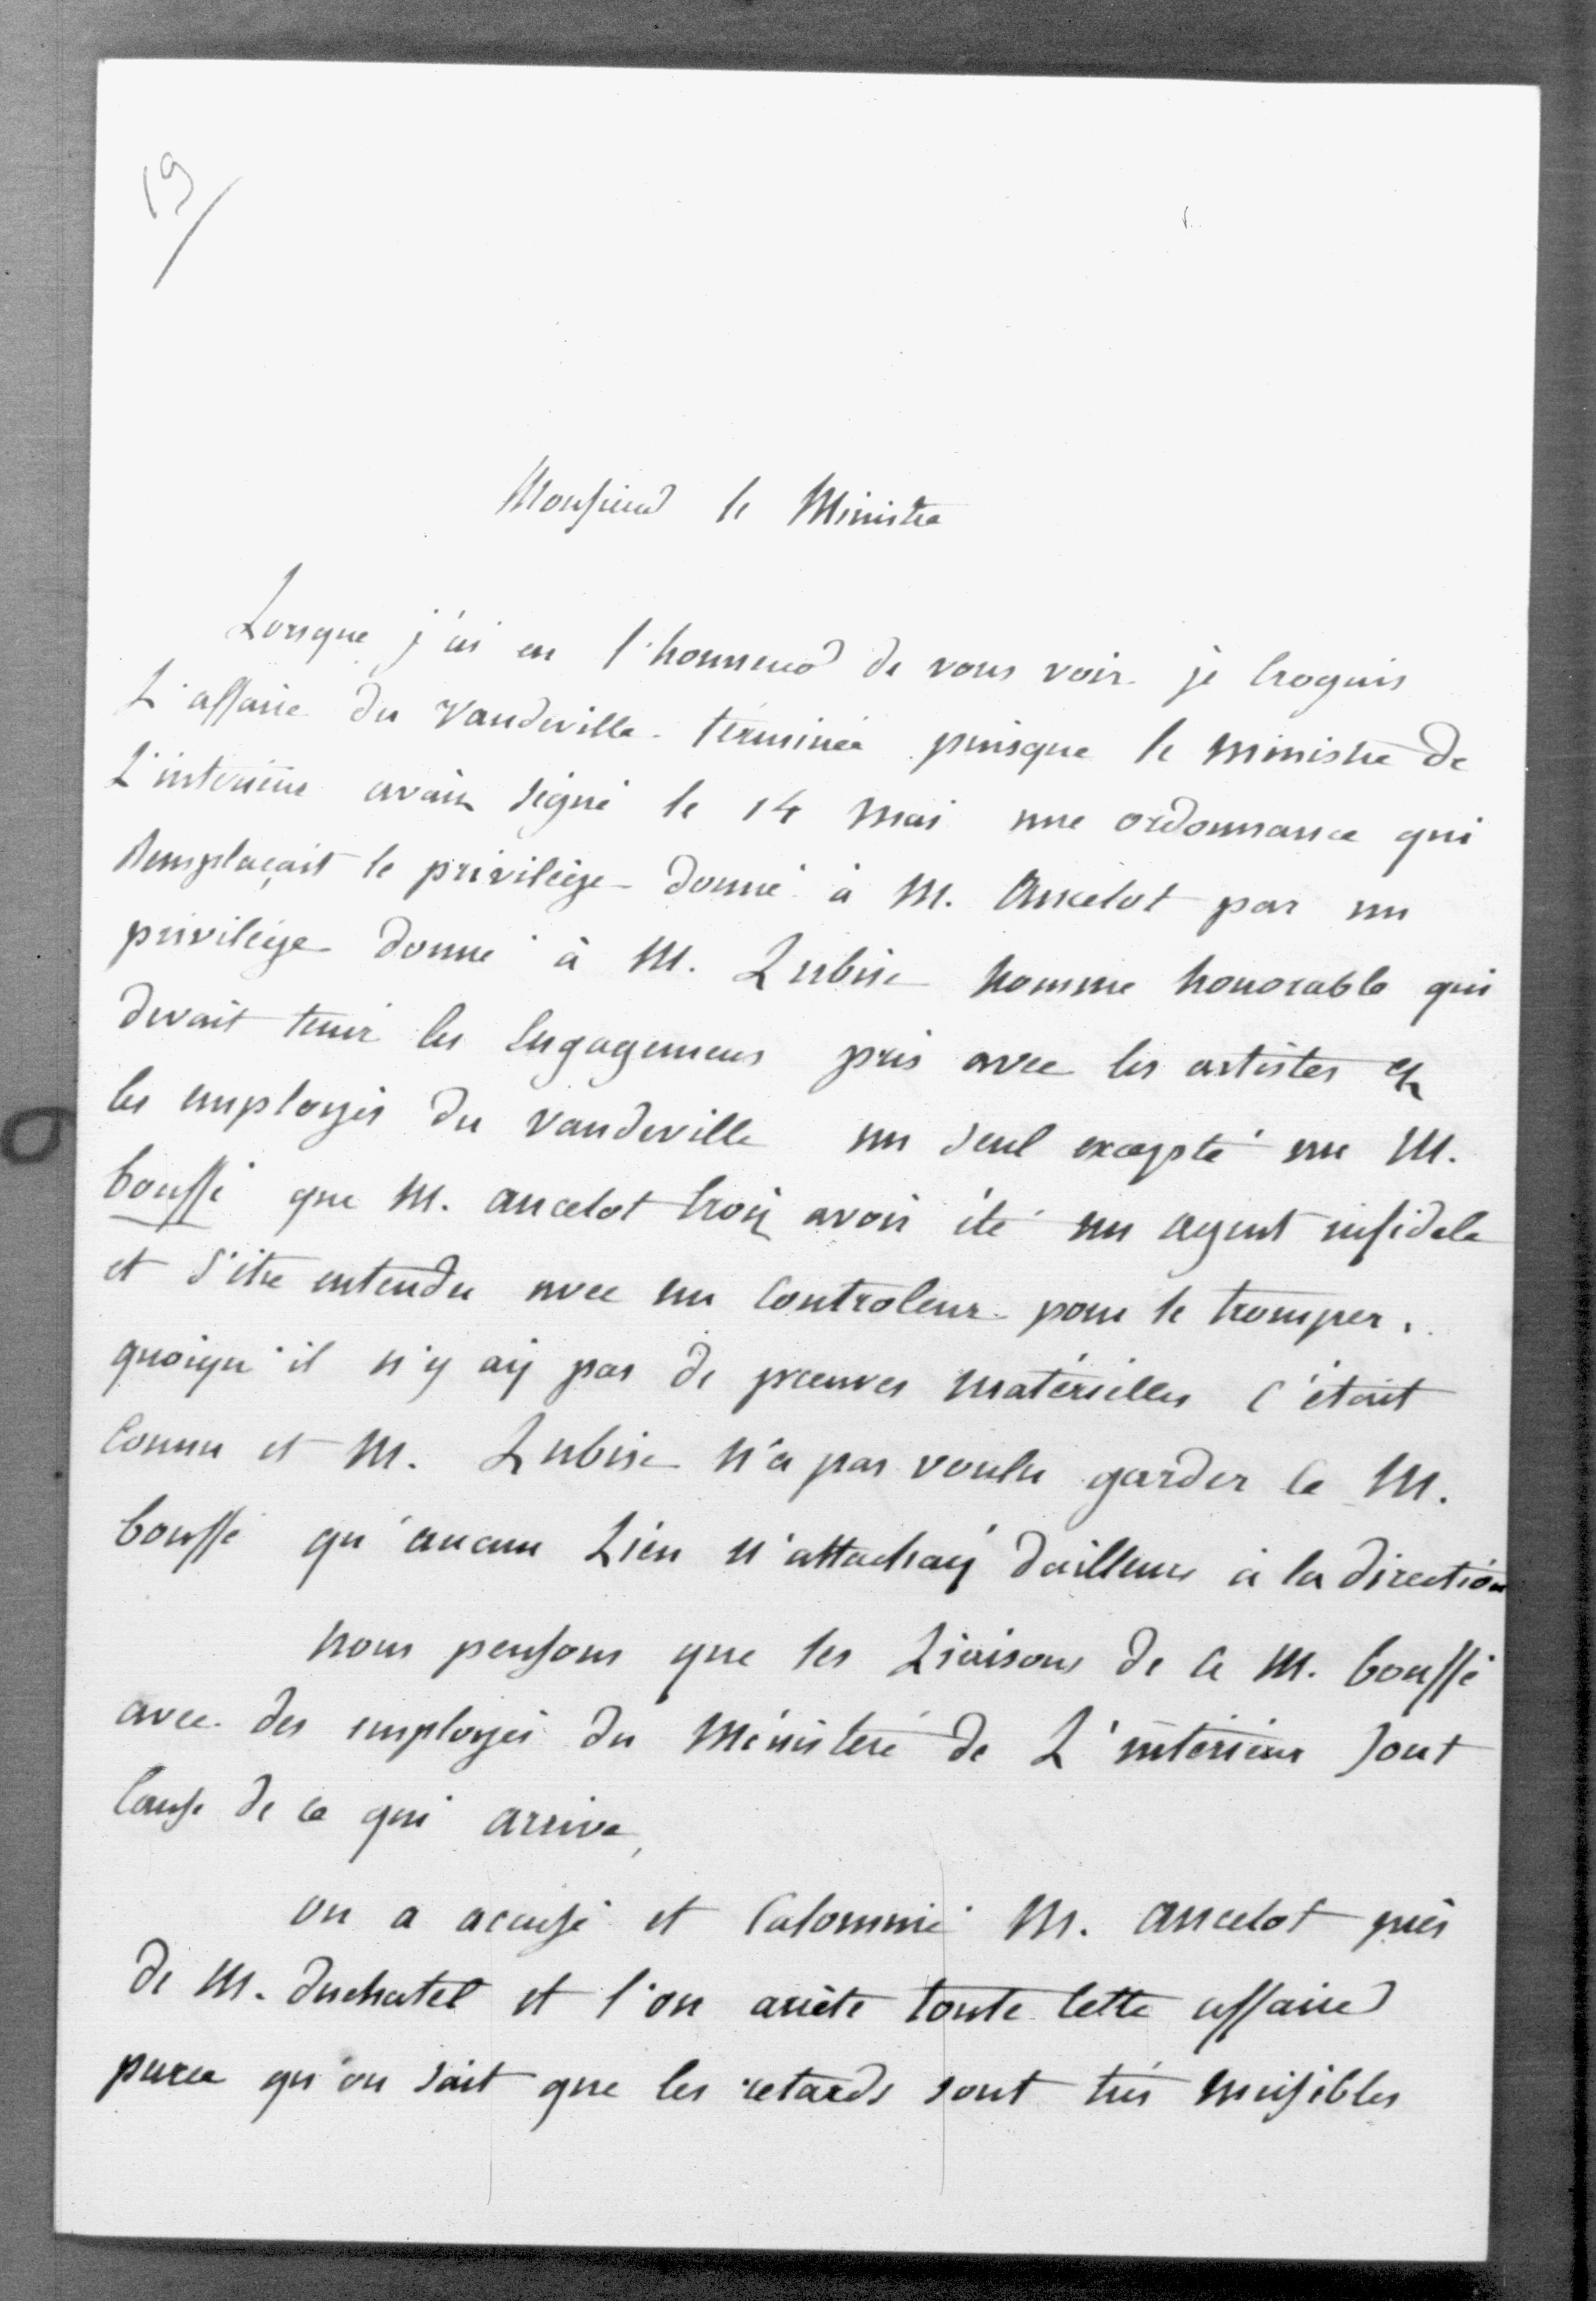 19
Monsieur le Ministre
Lorsque j'ai eu l'honneur de vous voir je croyais
L'affaire du Vaudeville terminée puisque le ministre de
L'intérieur avait signé le 14 mai une ordonnance qui
Remplaçait le privilège donné à M. Ancelot par un
privilège donné à M. Lubise homme honorable qui
devait tenir les engagemens pris avec les artistes et
les employés du vaudeville un seul excepté un M.
bouffé que M. ancelot croit avoir été un agent infidele
et s'être entendu avec un Controleur pour le tromper.
quoiqu'il n'y ait pas de preuves matérielles c'était
Connu et M. Lubise n'a pas voulu garder ce M.
bouffé qu'aucun Lien n'attachait d'ailleurs à la direction
nous pensons que les Liaisons de ce M. bouffé
avec des employés du Ministère de L'intérieur sont
Cause de ce qui arrive,
on a acusé et Calomnié M. ancelot près
de M. duchatel et l'on arrête toute cette affaire
parce qu'on sait que les retards sont très nuisibles